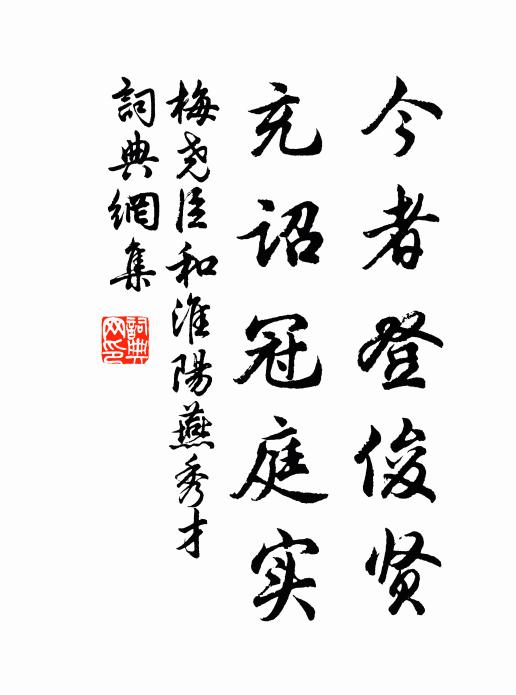 今者登俊贤
充诏冠庭实
梅尧臣和淮陽燕秀才
詞典網集
詞典网印